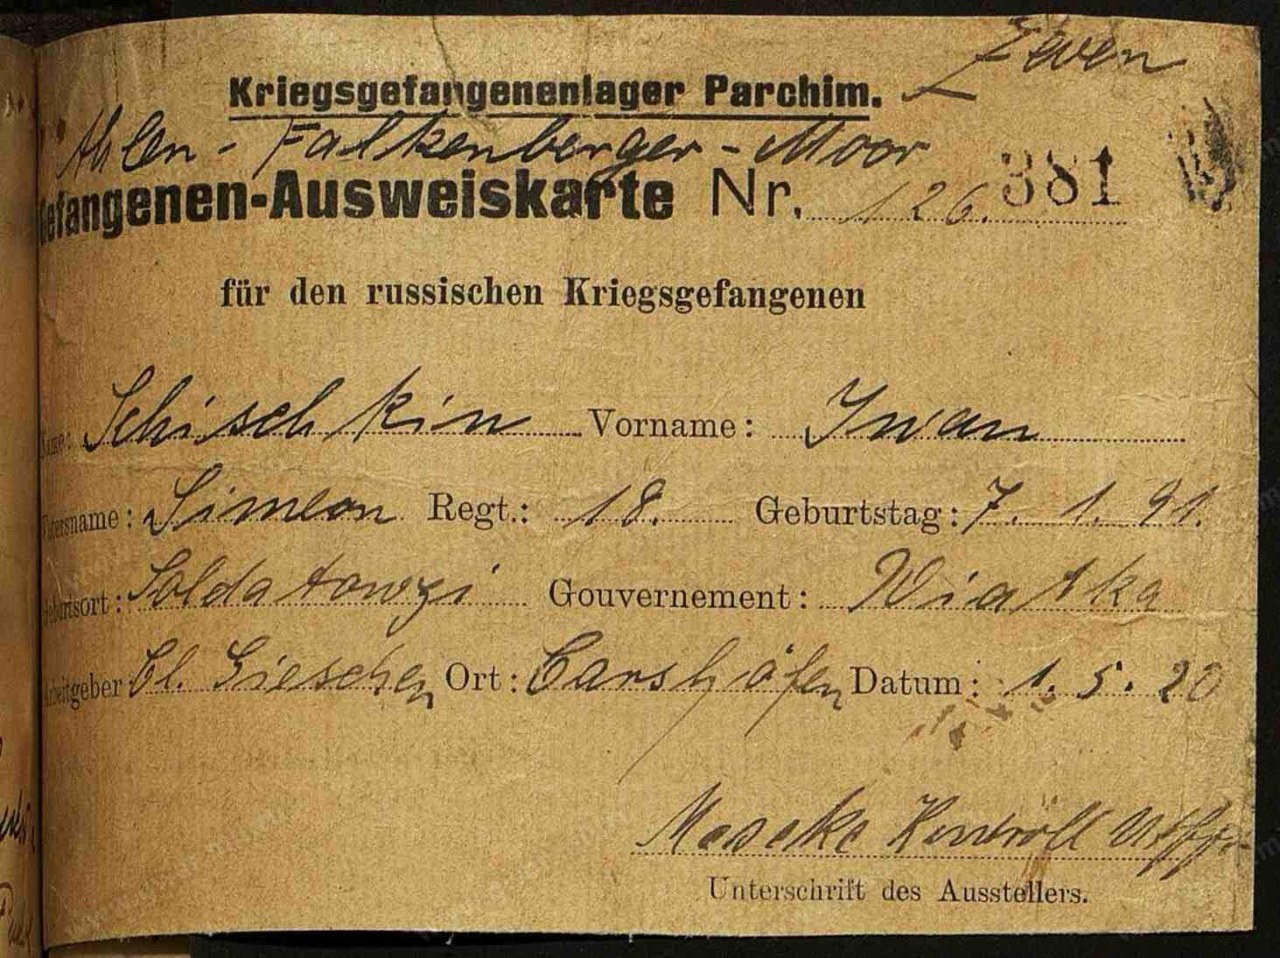 Zeven
Kriegsgefangenenlager Parchim.
Ahlen - Falkenberger - Moor
Gefangenen-Ausweiskarte Nr. 126. 381
für den russischen Kriegsgefangenen
Name: Schischkin Vorname: Iwan
Vatersname: Simeon Regt.: 18. Geburtstag: 7. 1. 91.
Geburtsort: Soldatowzi Gouvernement: Wiatka
Arbeitgeber Cl. Gieschen Ort: Carshöfen Datum: 1. 5. 20
Maseke Kontroll Uffz.
Unterschrift des Ausstellers.